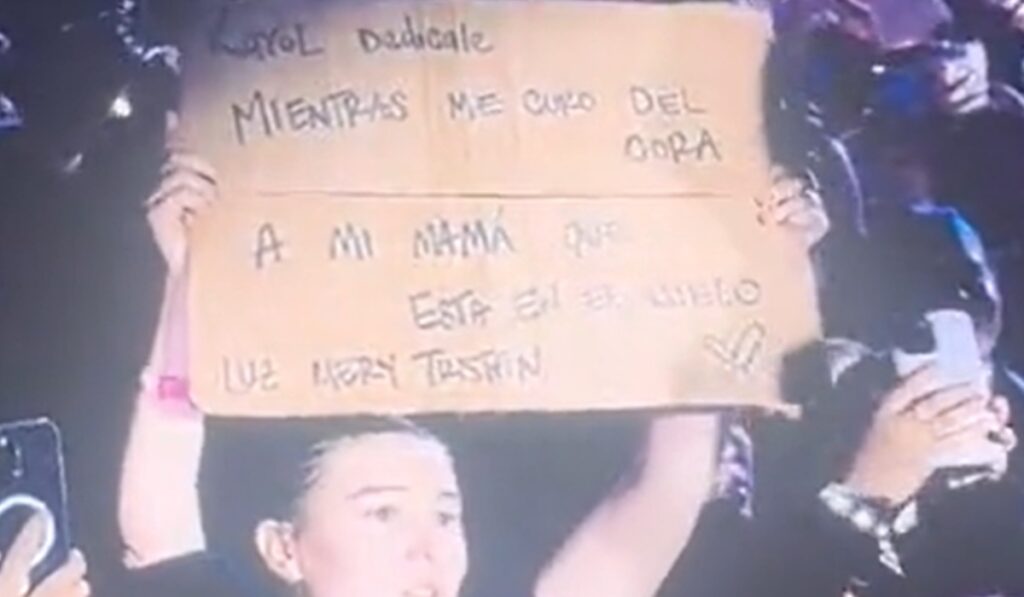 Karol Dedicale
MIENTRAS ME CURO DEL
CORA
A MI MAMÁ QUE
ESTA EN EL CIELO
LUZ MERY